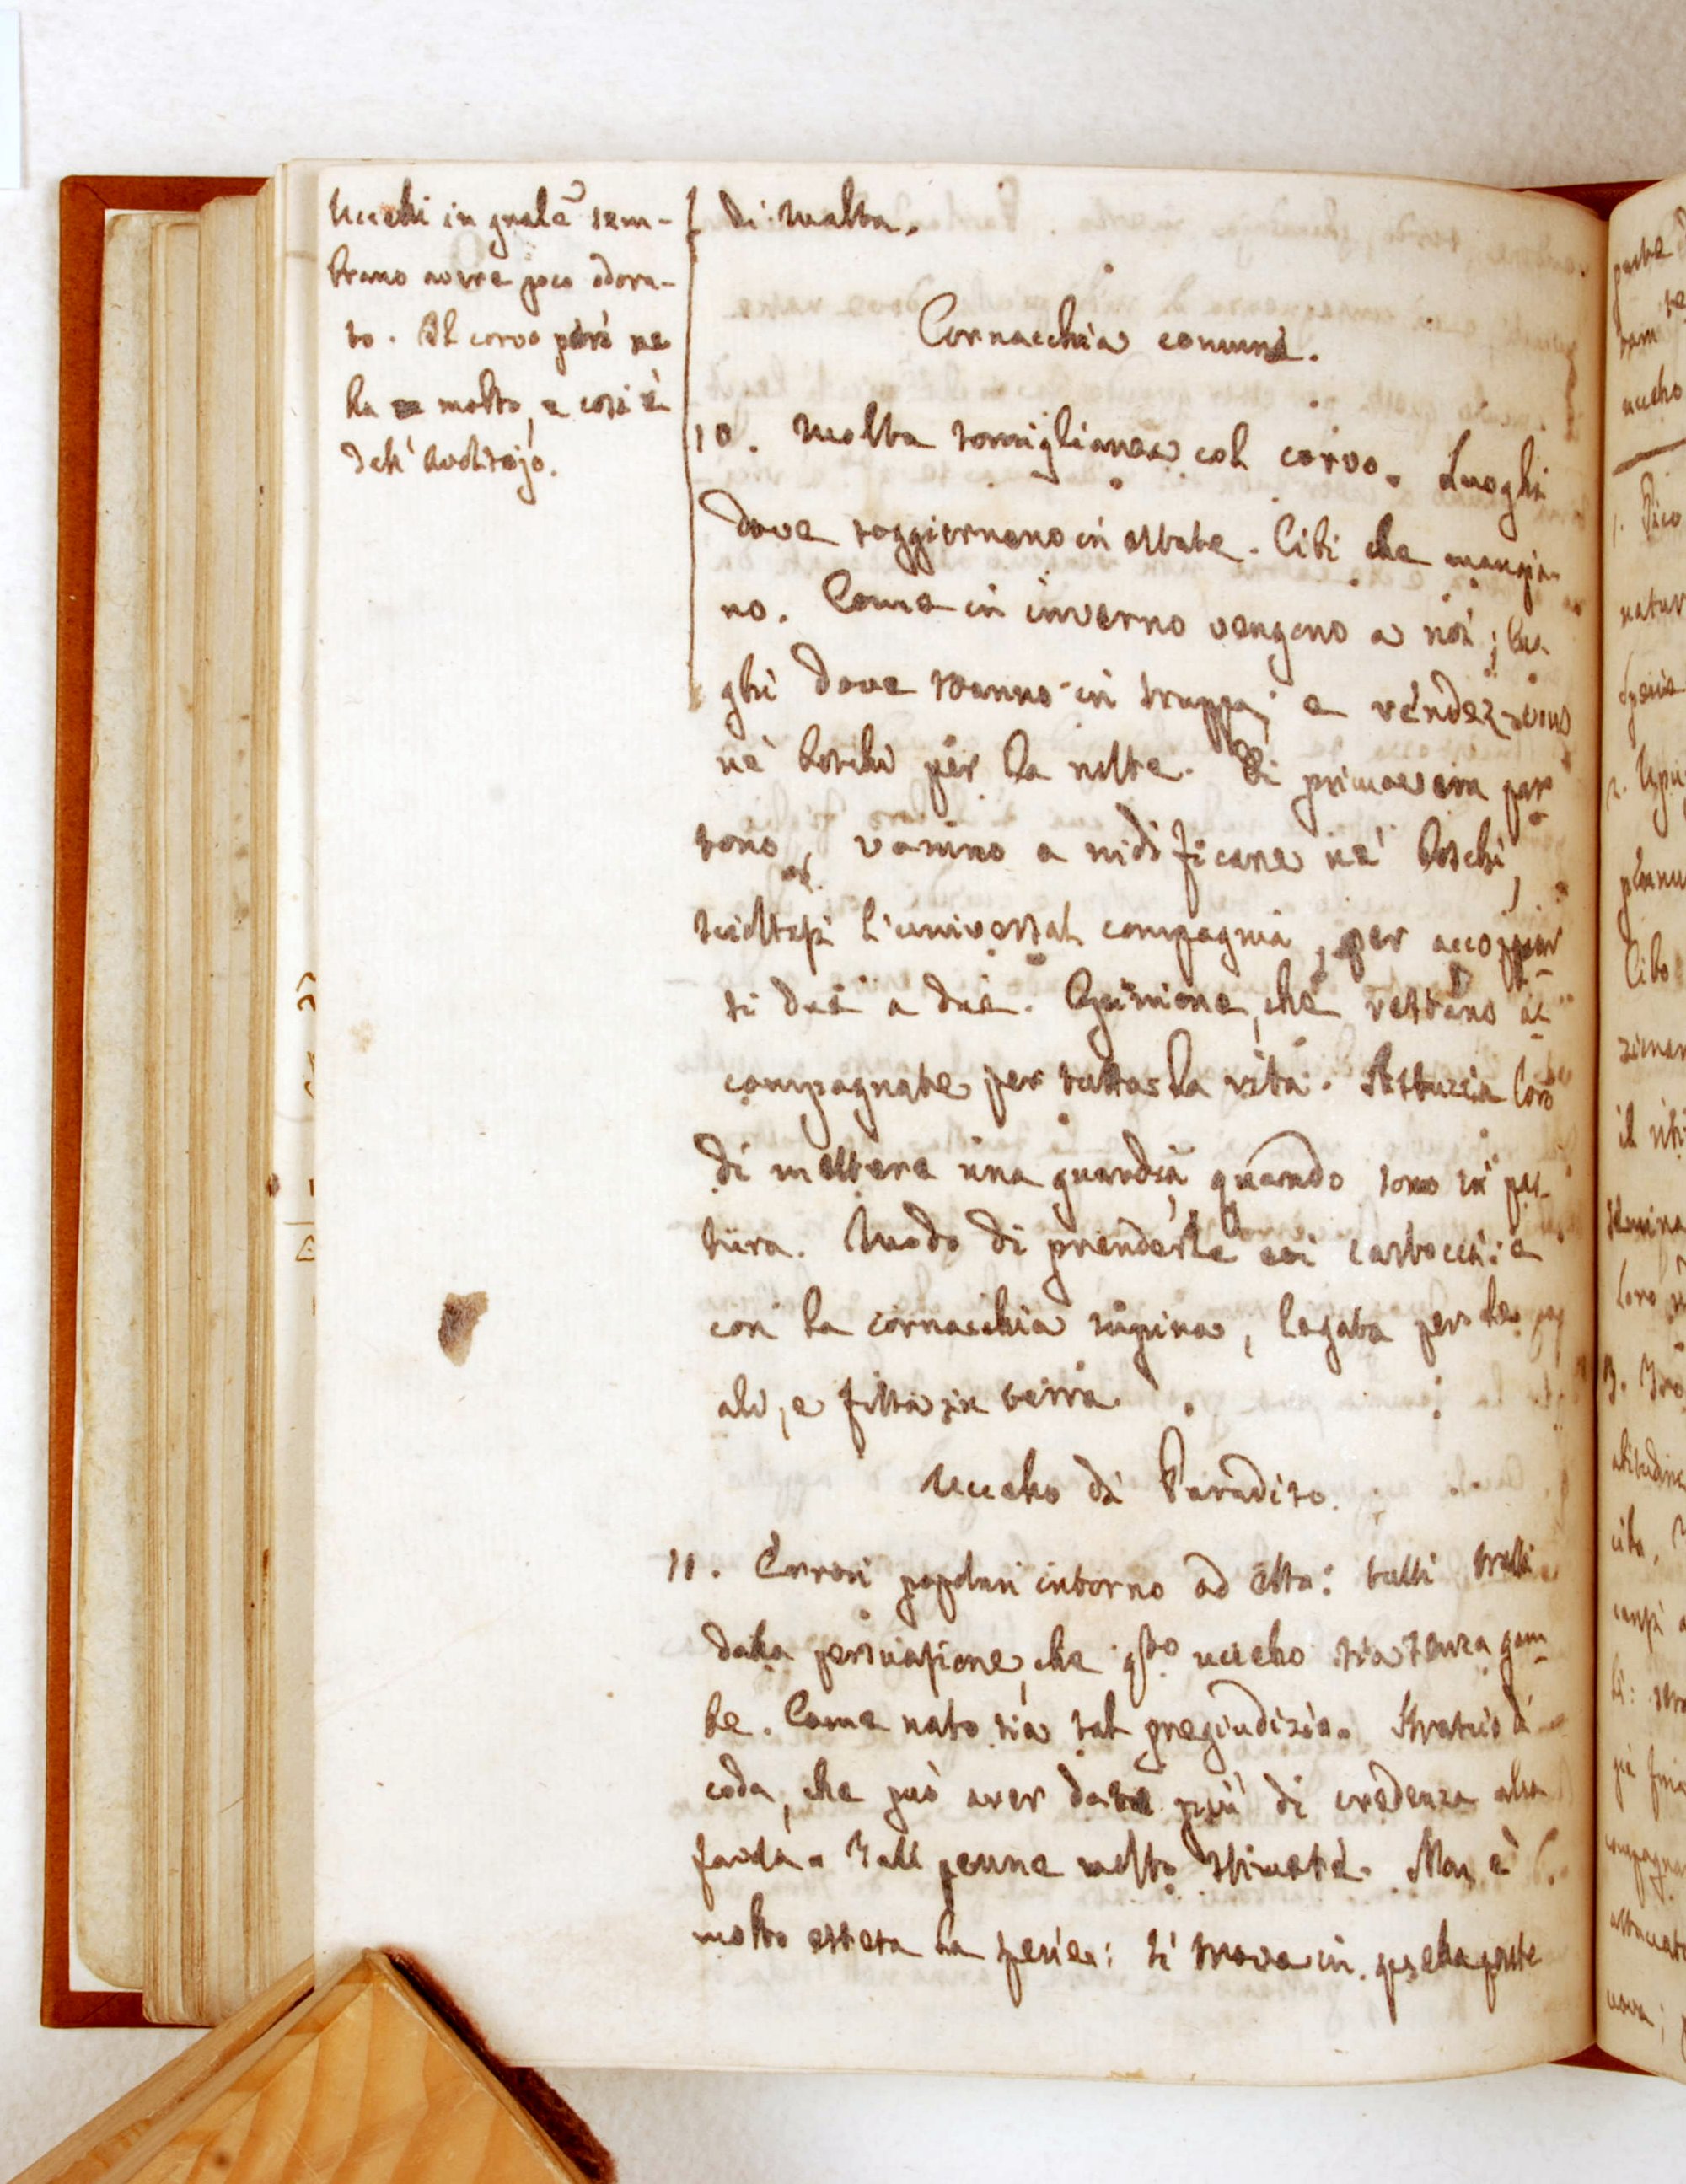 Uccelli in gnale sem-
brano avere poco odora-
to. Il corvo però ne
ha molto, e così è
dell' Avoltojo.
di Malta.
Cornacchia comune.
10. Molta somiglianza col corvo. Luoghi
dove soggiornano in estate. Cibi che mangia-
no. Come in inverno vengono a noi; luo-
ghi dove vanno in truppa; e réndez-vous
ne' boschi per la notte. Di primavera par
tono, vanno a nidificare ne' boschi,
scioltasi l'universal compagnia, per accoppiar
si due a due. Opinione, che restano ac
compagnate per tutta la vita. Astuzia loro
di mettere una guardia, quando sono in pas-
tura. Modo di prenderle coi cartocci: e
con la cornacchia supina, legata per le
ali, e fitta in terra.
Uccello di Paradiso.
11. Errori popolari intorno ad esso: tutti tratti
dalla persuasione, che qsto uccello sia senza gam
be. Come nato sia tal pregiudizio. Strascico di
coda, che può aver dato più di credenza alla
favola. Tali penne molto stimate. Non è
molto estesa la spezie: si trova in quella parte